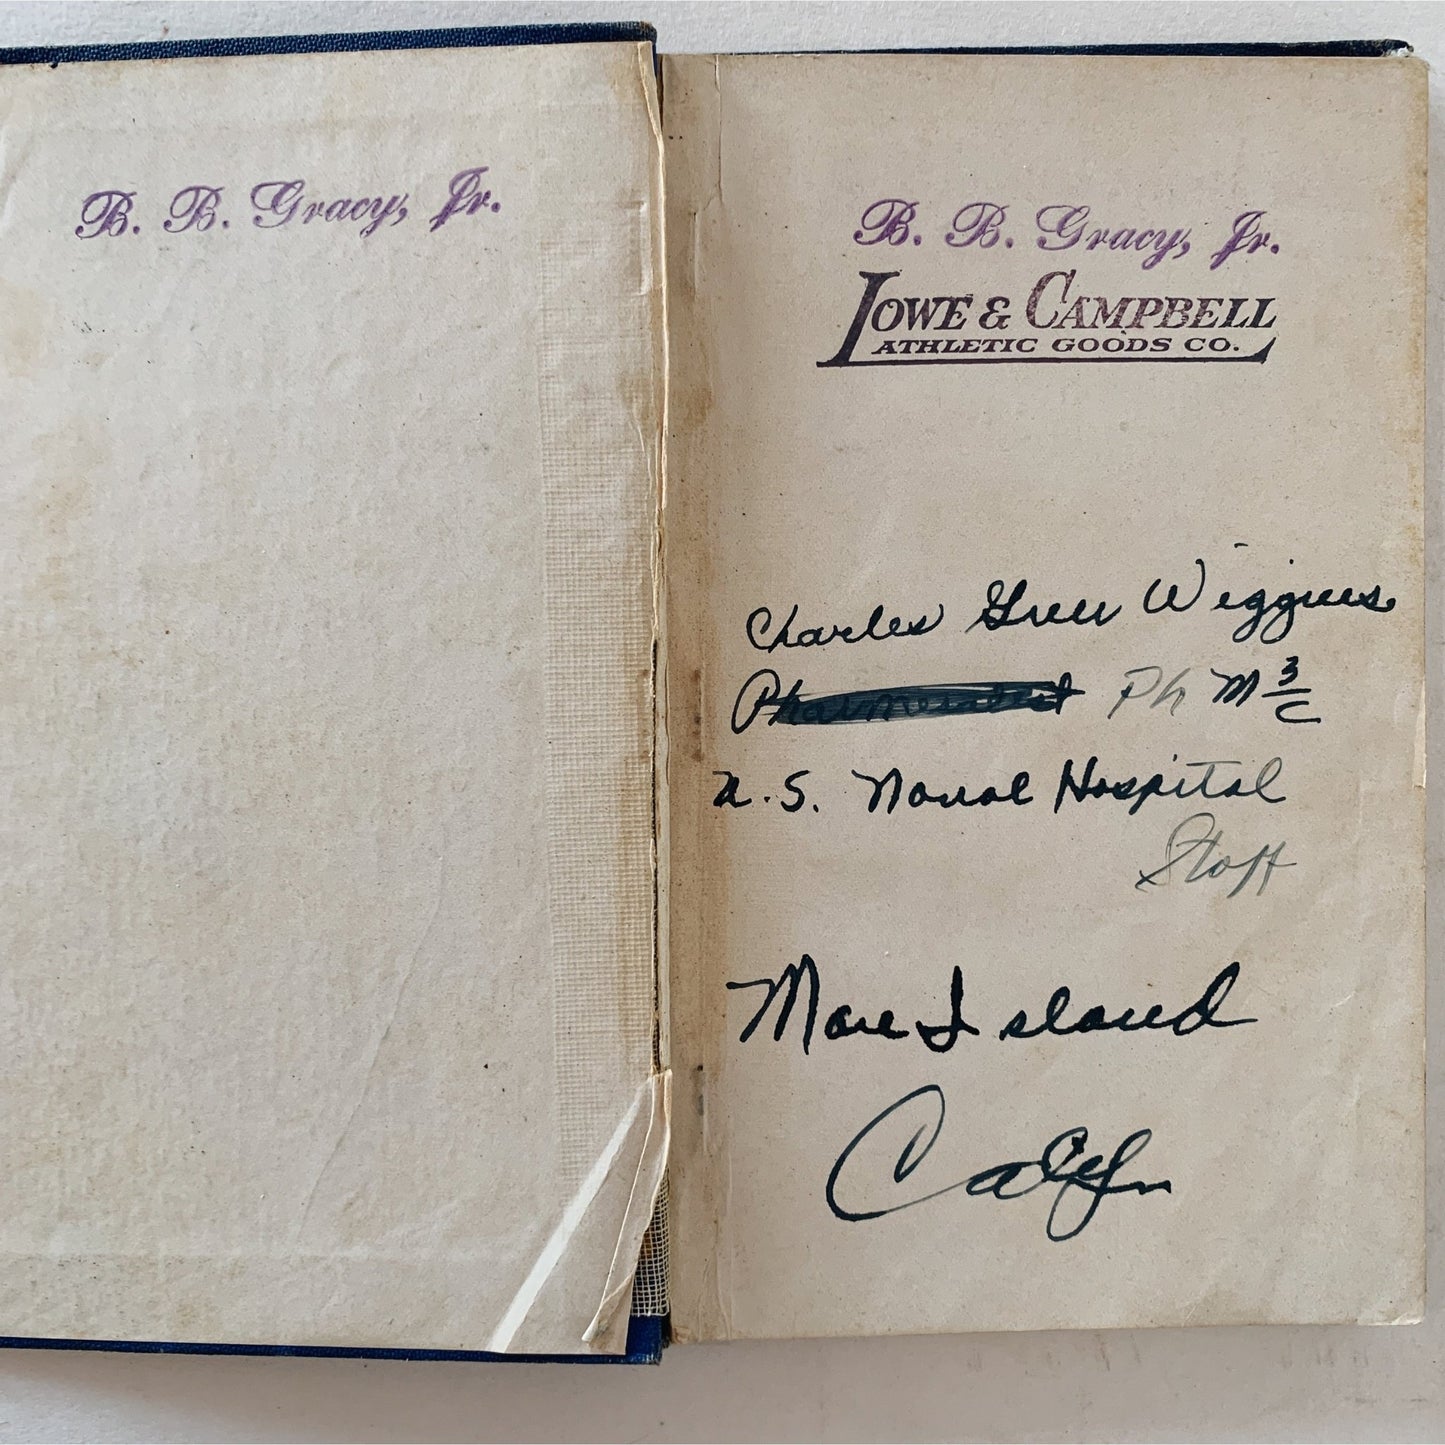 B. B. Gracy, Jr.
B. B. Gracy, Jr.
LOWE & CAMPBELL
ATHLETIC GOODS CO.
Charles Green Wiggins
Ph M 3/c
U. S. Naval Hospital
Staff
Mare Island
Calif